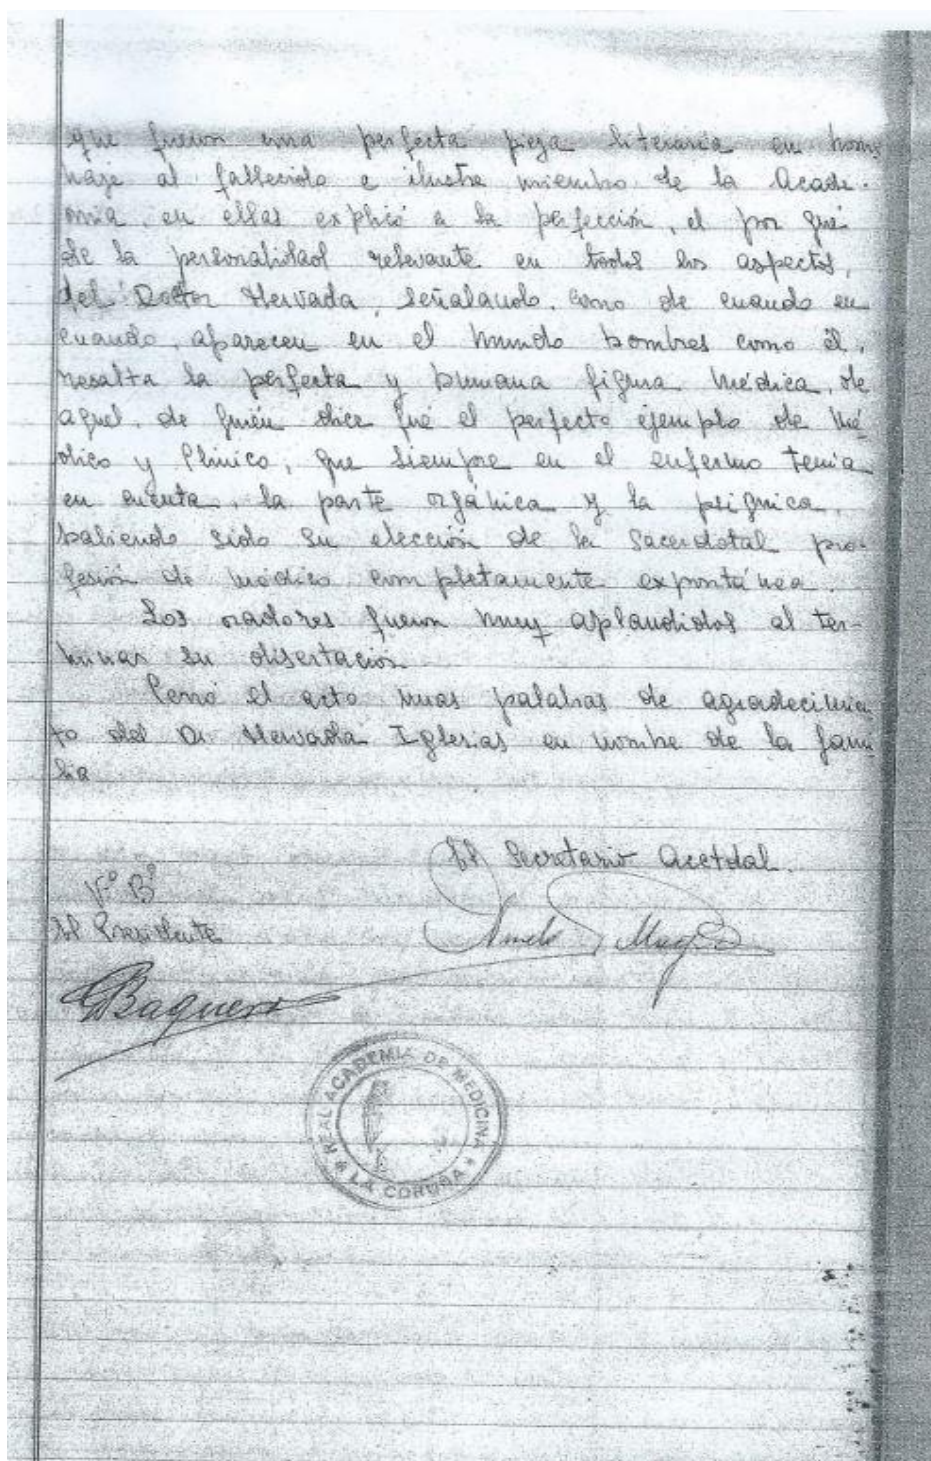 que fueron una perfecta pieza literaria en home
naje al fallecido e ilustre miembro de la Acade-
mia, en ellas explicó a la perfección, el por qué
de la personalidad relevante en todos los aspectos,
del Doctor Hervada, señalando, como de cuando en
cuando, aparecen en el mundo hombres como él,
resalta la perfecta y humana figura médica, de
aquel, de quién dice fué el perfecto ejemplo de Mé
dico y Clínico, que siempre en el enfermo tenia
en cuenta, la parte orgánica y la psiquica,
habiendo sido su elección de la Sacerdotal pro-
fesión de médico completamente expontánea.
Los oradores fueron muy aplaudidos al ter-
minar su disertación.
Cerró el acto unas palabras de agradecimien
to del Dr Hervada Iglesias en nombre de la fami
lia
El Secretario Acctdal.
Vº Bº
El Presidente
Baquero
REAL ACADEMIA DE MEDICINA
* LA CORUÑA *